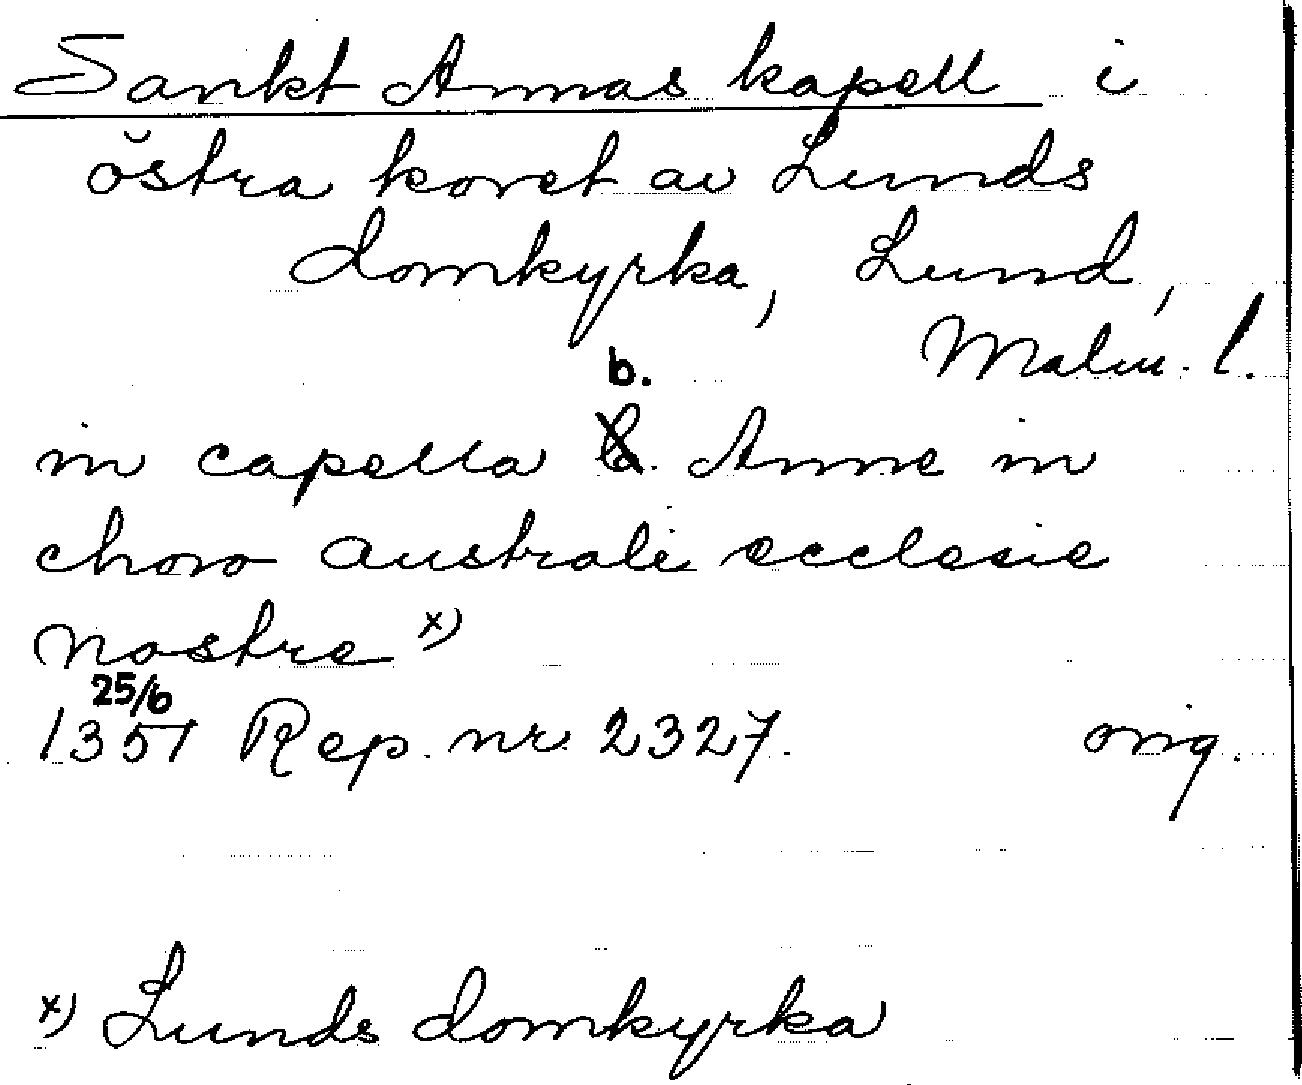 Sankt Annas kapell i
östra koret av Lunds
domkyrka, Lund,
Malm. l.
b.
in capella b. Anne in
choro australi ecclesie
nostre x)
25/6
1351 Rep. nr 2327. orig.
x) Lunds domkyrka